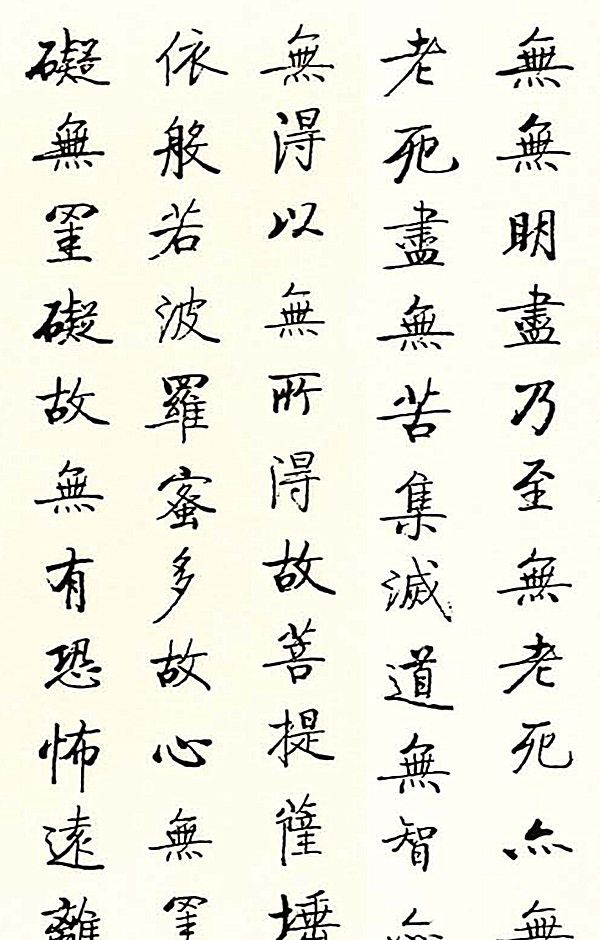 無無明盡乃至無老死亦無
老死盡無苦集滅道無智亦
無得以無所得故菩提薩埵
依般若波羅蜜多故心無罣
礙無罣礙故無有恐怖遠離